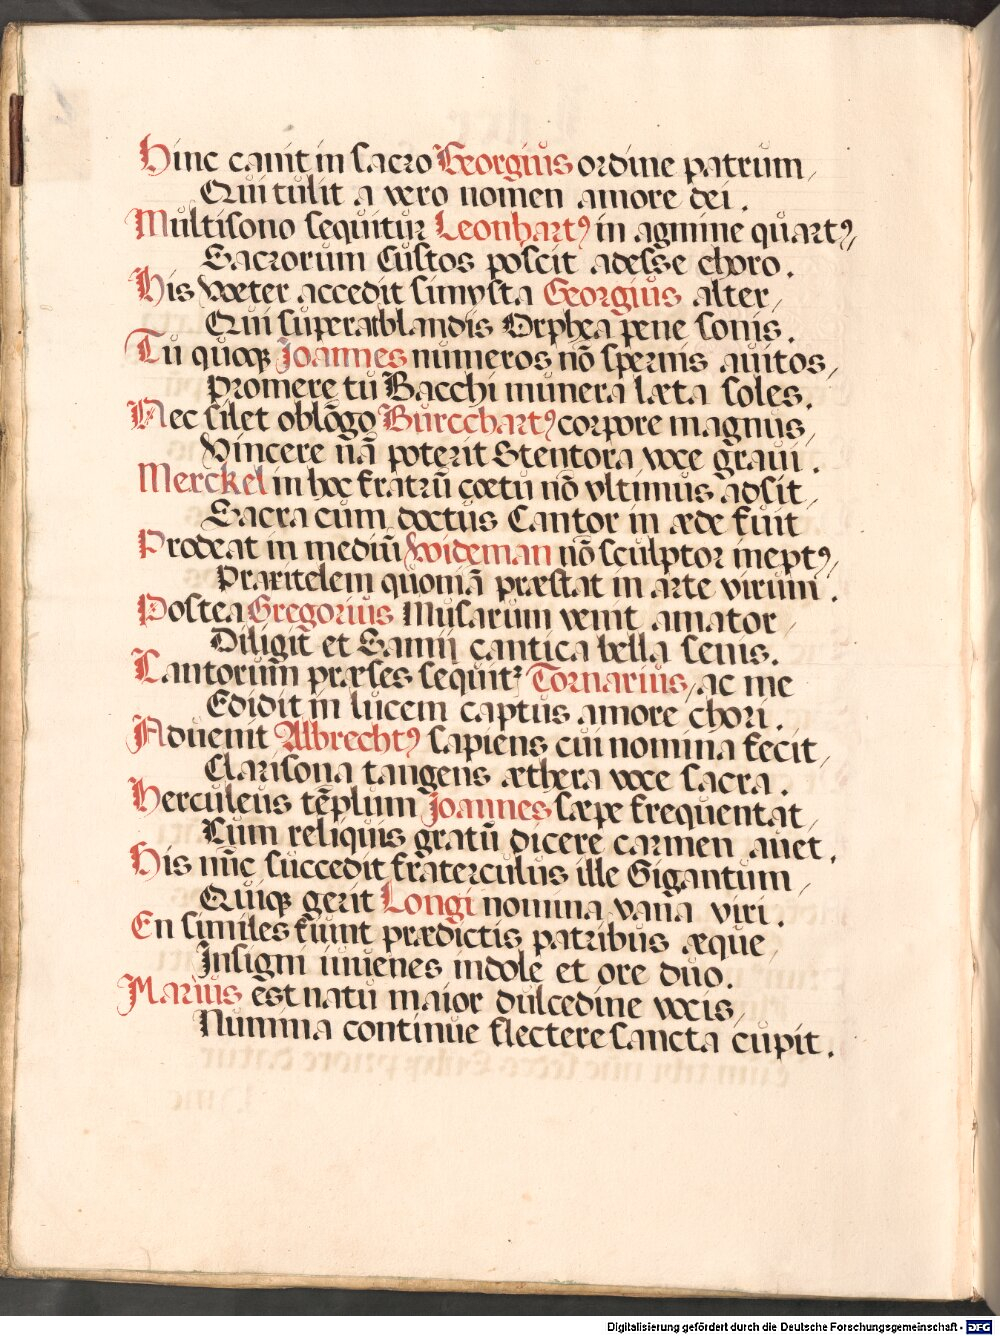 Hinc canit in sacro Georgius ordine patrum,
Qui tulit a vero nomen amore dei.
Multisono sequitur Leonhartꝰ in agmine quartꝰ,
Sacrorum Custos poscit adesse choro.
His voeter accedit simysta Georgius alter,
Qui superat blandis Orphea pene sonis.
Tu quoqꝫ Joannes numeros nō spernis auitos,
Promere tu Bacchi munera læta soles.
Nec silet oblōgo Burcchartꝰ corpore magnus,
Vincere nā poterit Stentora voce graui.
Merckel in hoc fratrū coetu nō vltimus adsit,
Sacra cum doctus Cantor in æde fuit
Prodeat in mediū Wideman nō sculptor ineptꝰ,
Praxitelem quoniā præstat in arte virum.
Postea Gregorius Musarum venit amator,
Diligit et Samii cantica bella senis.
Cantorum præses sequitᷣ Tornarius, ac me
Edidit in lucem captus amore chori.
Aduenit Albrechtꝰ sapiens cui nomina fecit,
Clarisona tangens æthera voce sacra.
Herculeus tēplum Joannes sæpe frequentat,
Cum reliquis gratū dicere carmen auet.
His nūc succedit fraterculus ille Gigantum,
Quiqꝫ gerit Longi nomina vana viri.
En similes fuint prædictis patribus æque,
Insigni iuuenes indole et ore duo.
Marius est natu maior dulcedine vocis,
Numina continue flectere sancta cupit.
Digitalisierung gefördert durch die Deutsche Forschungsgemeinschaft - DFG